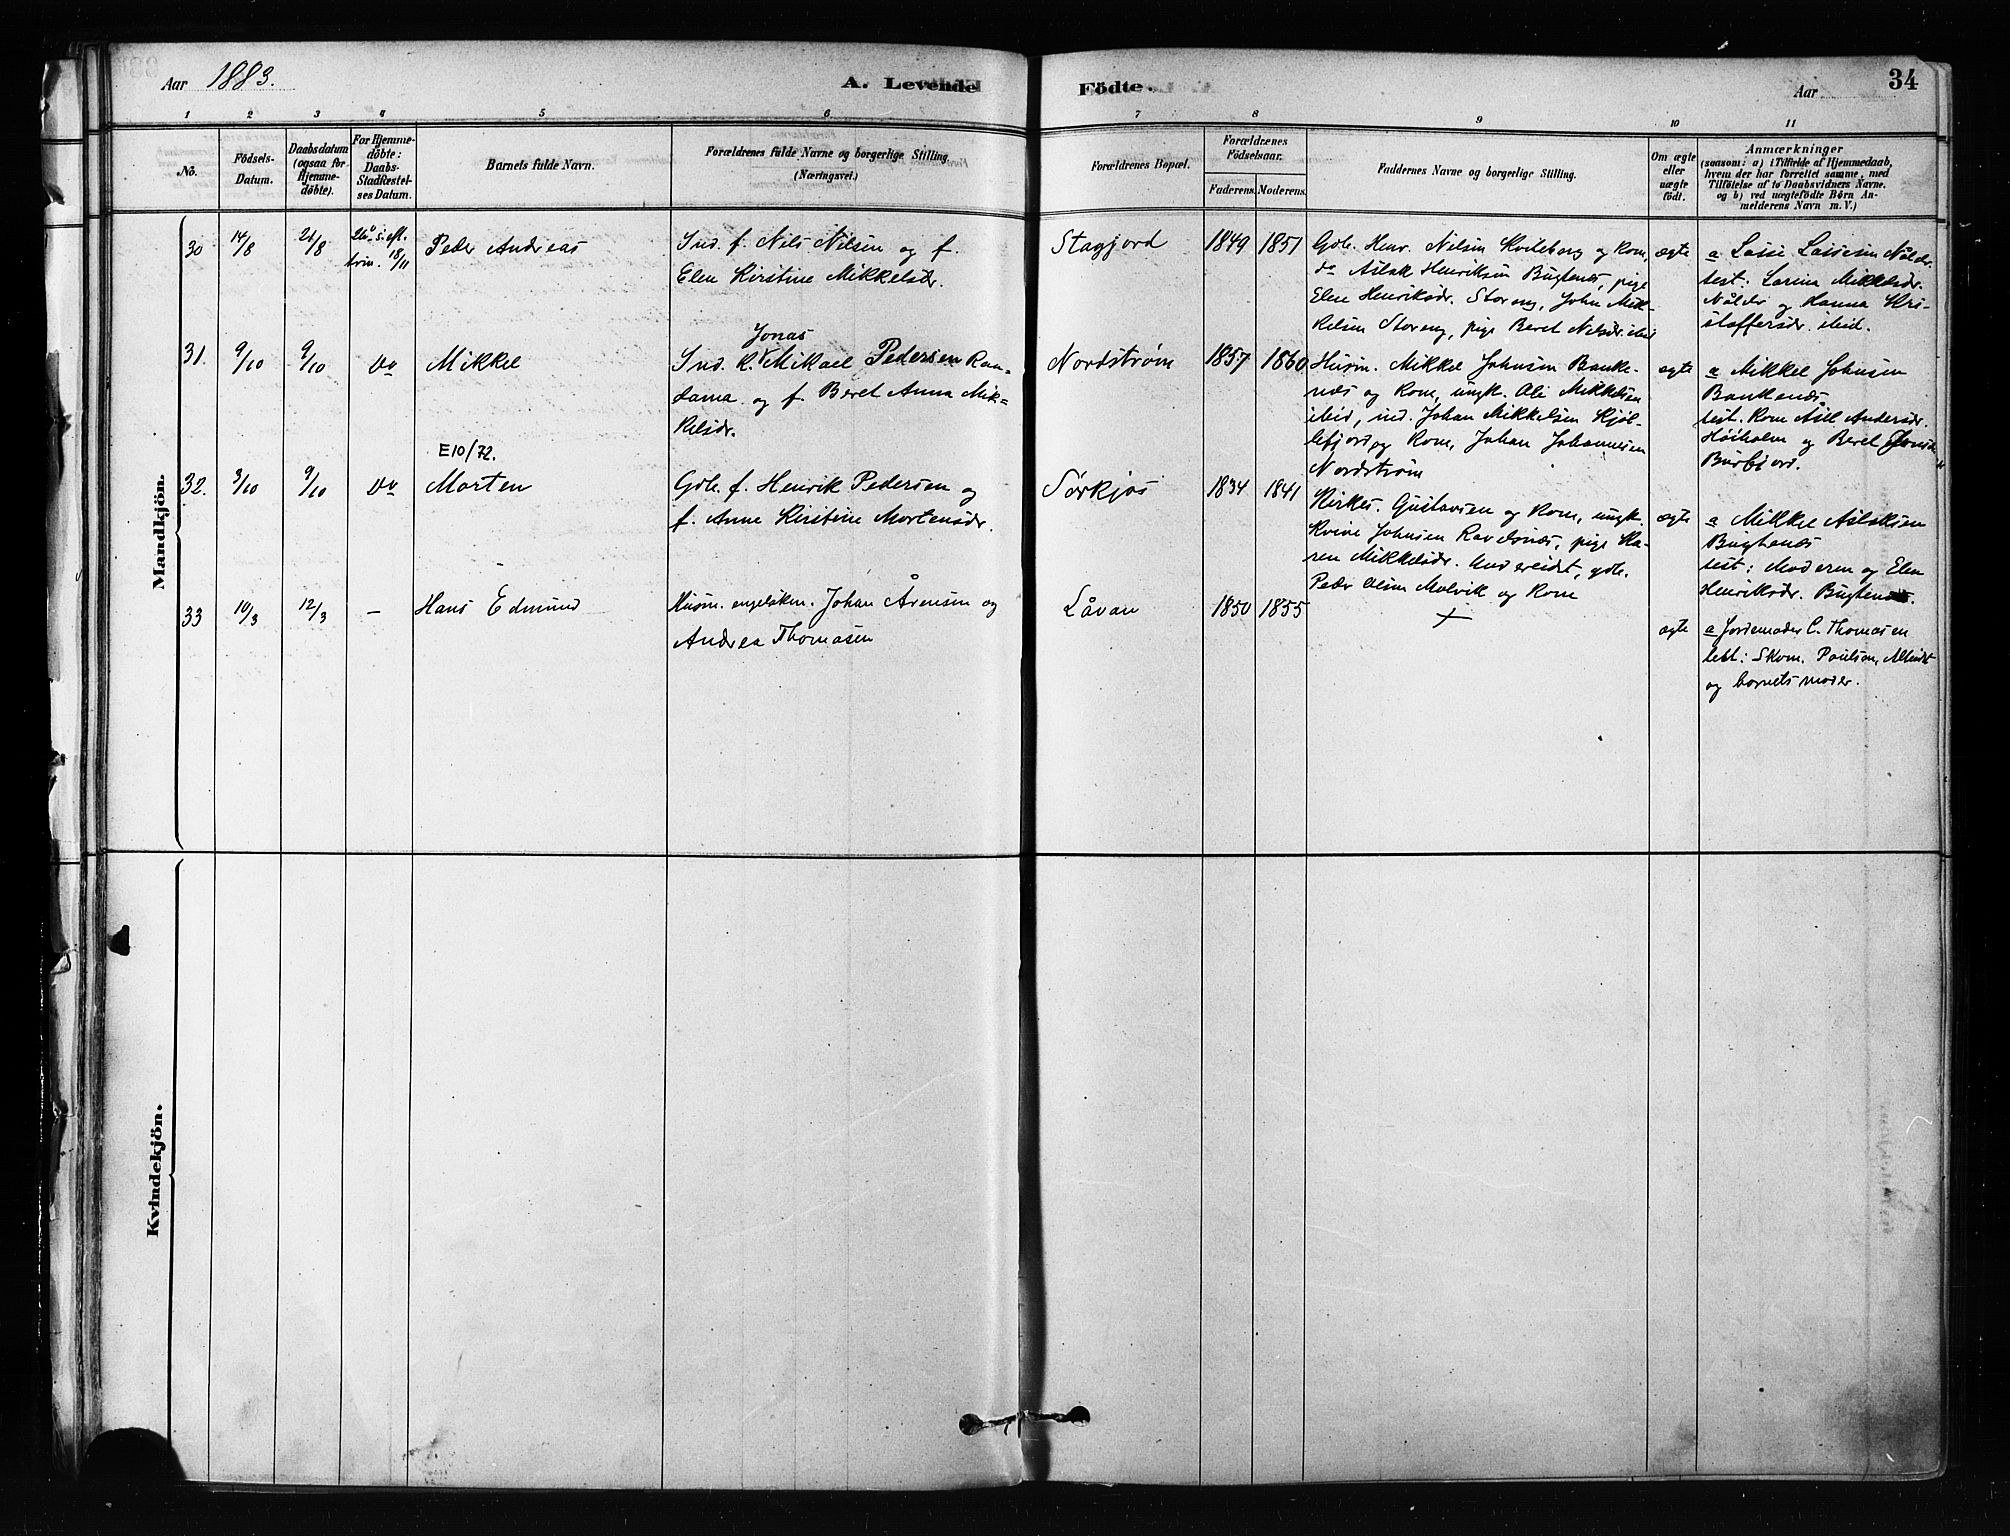 Aar 1883.
A. Levende Födte.
Aar
34
1 2 3 4 5 6 7 8 9 10 11
No.
Födsels-
Datum.
Daabsdatum
(ogsaa for
Hjemme-
döbte).
For Hjemme-
döbte:
Daabs-
Stadfæstel-
ses Datum.
Barnets fulde Navn.
Forældrenes fulde Navne og borgerlige Stilling.
(Næringsvei.)
Forældrenes Bopæl.
Forældrenes
Födselsaar.
Faderens. Moderens.
Faddernes Navne og borgerlige Stilling.
Om ægte
eller
uægte
födt.
Anmærkninger
(saasom: a) i Tilfælde af Hjemmedaab,
hvem der har forrettet samme, med
Tilföielse af to Daabsvidners Navne.
og b) ved uægtefödte Börn An-
melderens Navn m. V.)
Mandkjön.
30 14/8 26/8 26de s. eft.
trin. 18/11
Peder Andreas
Ind. f. Nils Nilsen og f.
Elen Kirstine Mikkelsdr.
Stagjord 1849 1851
Gdb. Henr. Nilsen Kvileborg og Kone,
do Aslak Henriksen Bugtenæs, pige
Elen Henriksdr. Storeng, John Mik-
kelsen Storeng, pige Beret Nilsdr. ibid
ægte
a Lasse Lassesen
test: Larina Mikkelsdr.
og Hanna Kri-
stoffersdr. ibid.
31. 9/10 9/10 do Mikkel
Jonas
Ind. K. Mikael Pedersen Ran-
dama og f. Beret Anna Mik-
kelsdr.
Nordstrøm 1857 1860
Husm. Mikkel Johnsen Banke-
næs og Kone, ungk. Ole Mikkelsen
ibid, ind. Johan Mikkelsen Kjøl-
lefjord og Kone, Johan Johannesen
Nordstrøm
ægte
a Mikkel Johnsen
Bankenæs
test. Kone Andersdr.
Høiholm og Beret
Burfjord.
E10/72.
32. 3/10 9/10 do Morten
Gdb. f. Henrik Pedersen og
f. Anne Kirstine Mortensdr.
Sørkjos 1834 1841
Kirkes. Gustavsen og Kone, ungk.
Johnsen Ravelsnæs, pige Ka-
ren Mikkelsdr. Andereidet, gdb.
Peder Olsen Molvik og Kone
ægte
a Mikkel Aslaksen
Bugtenæs
test: Moderen og Elen
Henriksdr. Bugtenæs.
33 10/3 12/3 – Hans Edmund
Husm. Johan Årensen og
Andrea Thomasen
Låvan 1850 1855
+
ægte
a Jordemoder C. Thomasen
test: Skom. Paulsen,
og barnets moder.
Kvindekjön.